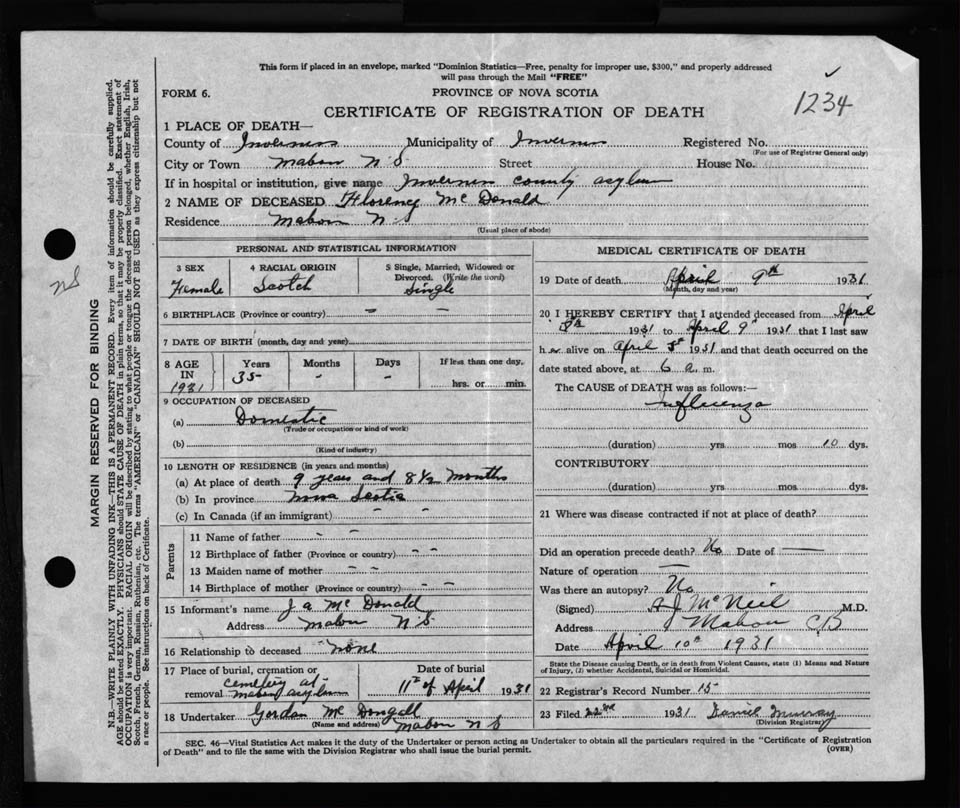 This form if placed in an envelope, marked "Dominion Statistics—Free, penalty for improper use, $300," and properly addressed
will pass through the Mail "FREE"
FORM 6.
PROVINCE OF NOVA SCOTIA
1234
CERTIFICATE OF REGISTRATION OF DEATH
1 PLACE OF DEATH—
County of Inverness Municipality of Inverness Registered No.
(For use of Registrar General only)
City or Town Mabou N.S. Street House No.
If in hospital or institution, give name Inverness county asylum
2 NAME OF DECEASED Florency Mc Donald
Residence Mabou N.S
(Usual place of abode)
PERSONAL AND STATISTICAL INFORMATION
3 SEX
Female
4 RACIAL ORIGIN
Scotch
5 Single, Married, Widowed or
Divorced. (Write the word)
Single
6 BIRTHPLACE (Province or country) – –
7 DATE OF BIRTH (month, day and year)
8 AGE
IN
1931
Years
35
Months
-
Days
-
If less than one day,
hrs. or min.
9 OCCUPATION OF DECEASED
(a) Domestic
(Trade or occupation or kind of work)
(b)
(Kind of industry)
10 LENGTH OF RESIDENCE (in years and months)
(a) At place of death 9 years and 8 1/2 months
(b) In province Nova Scotia
(c) In Canada (if an immigrant) – –
Parents
11 Name of father – –
12 Birthplace of father (Province or country) – –
13 Maiden name of mother – –
14 Birthplace of mother (Province or country) – –
15 Informant's name J a Mc Donald
Address Mabou N S
16 Relationship to deceased none
17 Place of burial, cremation or
removal
cemetery at
Mabou asylum
Date of burial
11th of April 1931
18 Undertaker Gordon Mc Dongall
(Name and address) Mabou N S
MEDICAL CERTIFICATE OF DEATH
19 Date of death April 9th 1931
(Month, day and year)
20 I HEREBY CERTIFY that I attended deceased from April
8th 1931 to April 9th 1931 that I last saw
h er alive on April 8th 1931 and that death occurred on the
date stated above, at 6 a. m.
The CAUSE of DEATH was as follows:—
Influenza
(duration) yrs mos 10 dys.
CONTRIBUTORY
(duration) yrs mos dys.
21 Where was disease contracted if not at place of death?
Did an operation precede death? No Date of —
Nature of operation —
Was there an autopsy? No
(Signed) A J McNeil M.D.
Address Mabou CB
Date April 10th 1931
State the Disease causing Death, or in death from Violent Causes, state (1) Means and Nature
of Injury, (2) whether Accidental, Suicidal or Homicidal.
22 Registrar's Record Number 15
23 Filed 22nd 1931 Daniel Murray
(Division Registrar)
SEC. 46—Vital Statistics Act makes it the duty of the Undertaker or person acting as Undertaker to obtain all the particulars required in the "Certificate of Registration
of Death" and to file the same with the Division Registrar who shall issue the burial permit.
(OVER)
NS
MARGIN RESERVED FOR BINDING
N.B.—WRITE PLAINLY WITH UNFADING INK—THIS IS A PERMANENT RECORD. Every item of information should be carefully supplied.
AGE should be stated EXACTLY. PHYSICIANS should STATE CAUSE OF DEATH in plain terms, so that it may be properly classified. Exact statement of
OCCUPATION is very important. RACIAL ORIGIN will be described by stating to what people or tongue the deceased person belonged, whether English, Irish,
Scotch, French, German, Russian, Ruthenian, etc. The terms "AMERICAN" or "CANADIAN" SHOULD NOT BE USED as they express citizenship but not
a race or people. See instructions on back of Certificate.